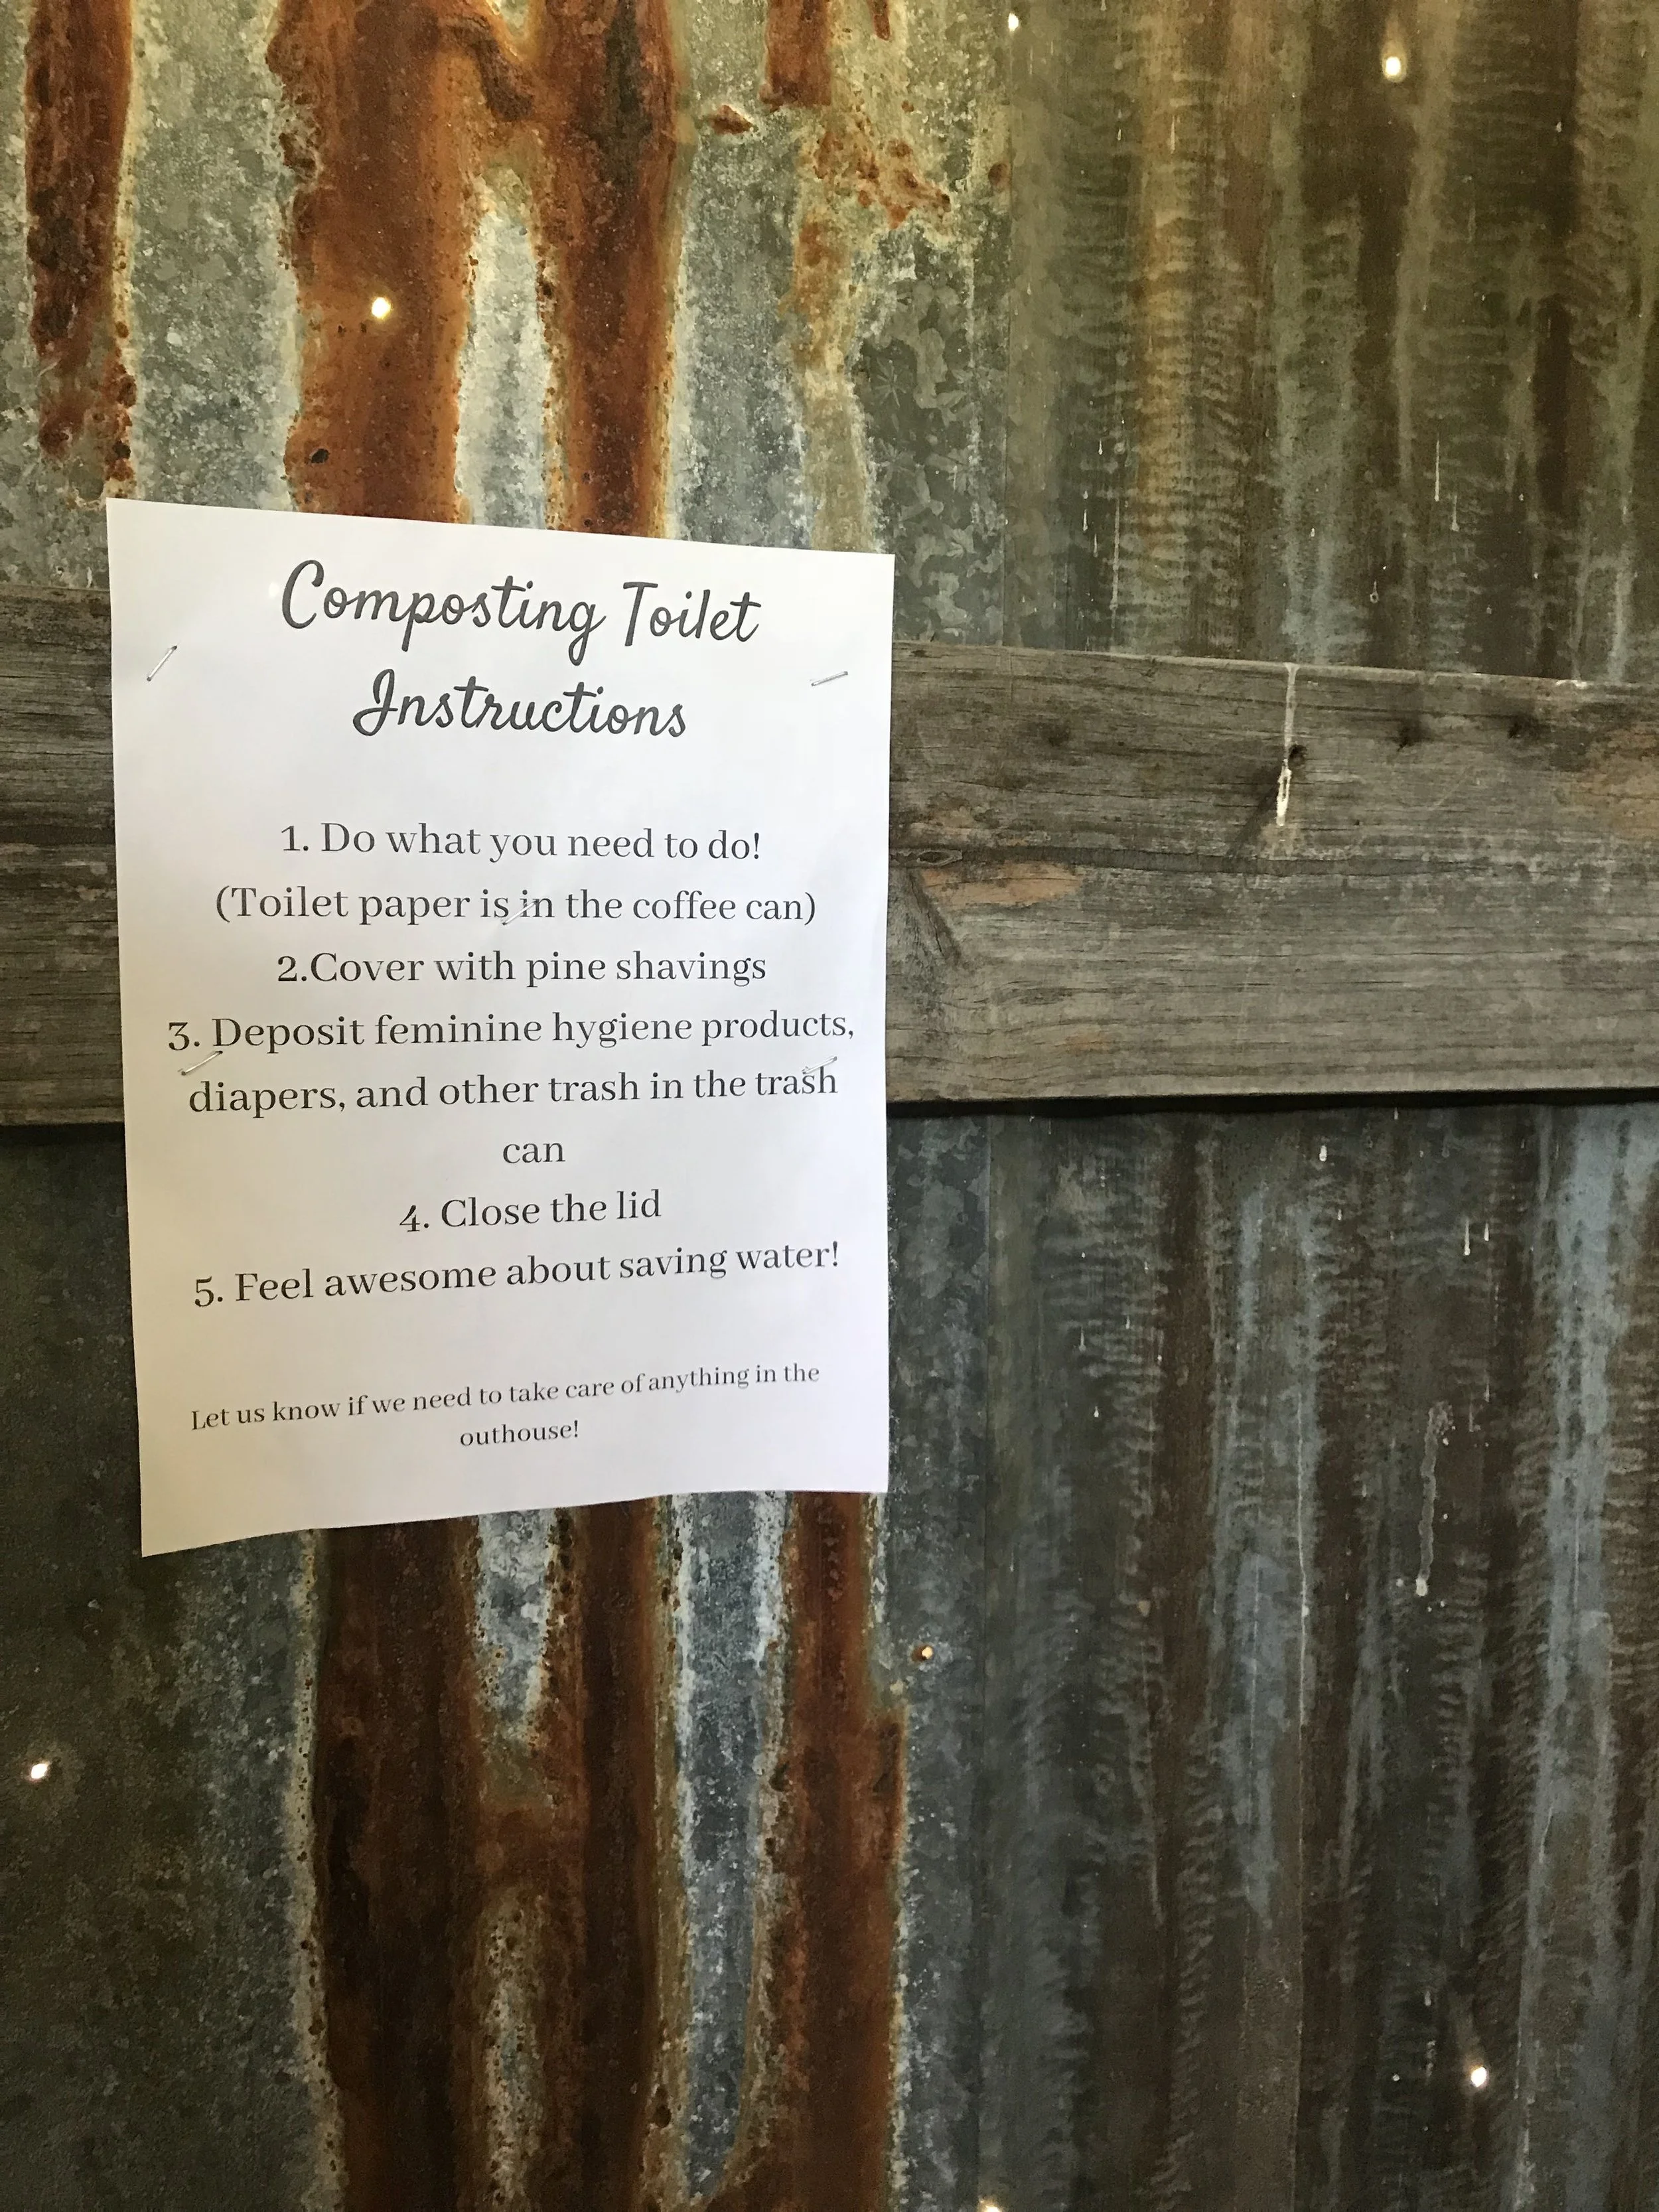 Composting Toilet
Instructions
1. Do what you need to do!
(Toilet paper is in the coffee can)
2.Cover with pine shavings
3. Deposit feminine hygiene products,
diapers, and other trash in the trash
can
4. Close the lid
5. Feel awesome about saving water!
Let us know if we need to take care of anything in the
outhouse!